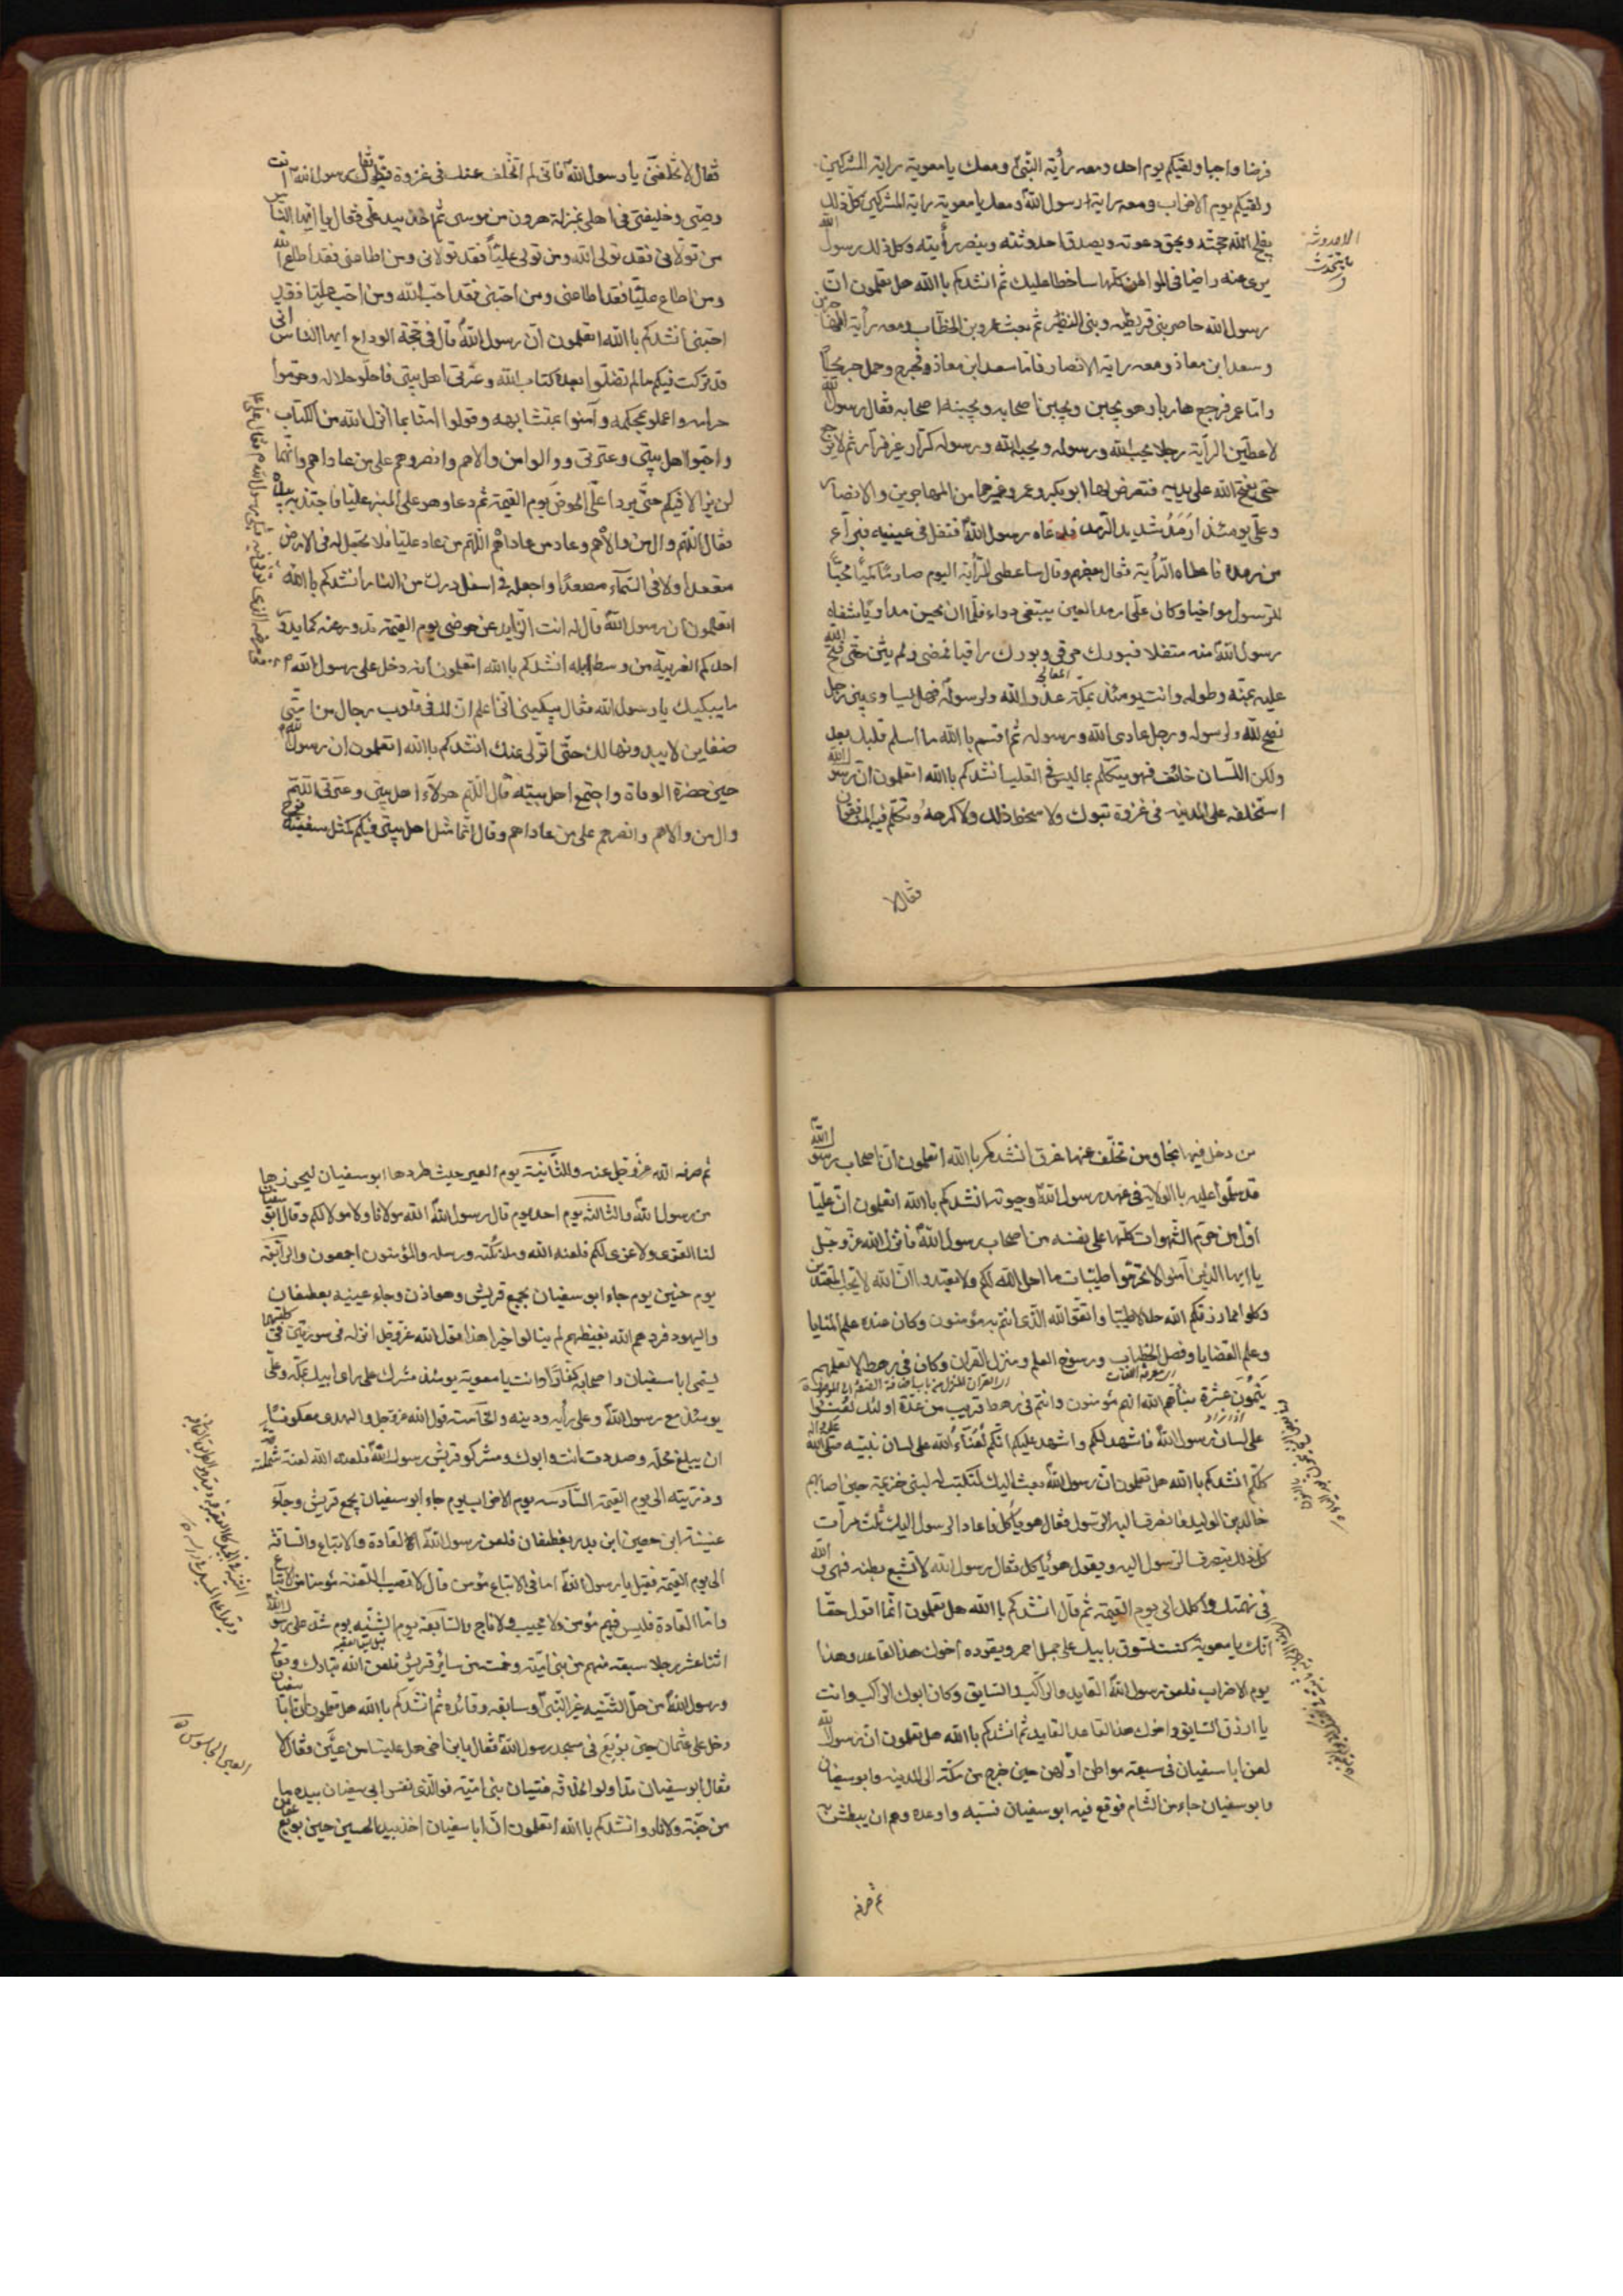 فرضا واجبا ولقيكم يوم احد ومعه رأية النّبىّ ومعك يا معوية راية المشركين
ولقيكم يوم الاحزاب ومعه راية رسول اللهّ ومعك يا معوية راية المشركين كل ذلك
يفلج الله حجته ويحق دعوته ويصدق احدوثته وينصر رأيته وكل ذلك رسول الله
يرى عنه راضيا فى المواطن كلّها ساخطا عليك ثم انشدكم باالله هل تعلمون ان
رسول الله حاصر بنى قريظه وبنى النضير ثم بعث عمر وبن الخطّاب ومعه رأية المهاجرين
وسعد ابن معاذ ومعه راية الانصار فامّا سعد ابن معاذ فجرح وحمل جريحًا
وامّا عمر فرجع هاربا وهو يجبن ويجبن اصحابه ويجبنه اصحابه فقال رسول الله
لاعطين الرّاية رجلا يحب الله ورسوله ويحبه الله ورسوله كرّار غير فرّار ثم لا يرجع
حتى يفتح الله على يديه فتعرض لها ابو بكر وعمر وغيرهما من المهاجرين والانصار
وعلّى يومئذ ارمد شديد الرمد فدعاه رسول اللهّ فتفل فى عينيه فبرأ
من رمده فاعطاه الرّأية
للرّسول مواخيا وكان علّى ارمد العين يبتغى دواء فلّما ان لم يحسن مداويًا شفاه
رسول اللهّ منه متفلا فبورك مرقى وبورك راقيا فمضى ولم يثن حتى فتح الله
عليه بمنّه وطوله وانت يومئذ بمكة عدو الله ولرسوله فهل يساوى بين رجل
نصح لله ولرسوله ورجل عادى الله ورسوله ثم اقسم باالله ما اسلم قلبك بعد
ولكن اللّسان خائف فهو يتكلم بما ليس فى القلب انشدكم باالله اتعلمون انّ رسول الله
استخلفه على المدينه فى غزوة تبوك ولا سخط ذلك ولا كرهه وتكلم فيه المنافقون
الاحدوثة
ما يتحدث
فقال لا
فقال لا تخلفنى يا رسول اللهّ فانى لم اتخلف عنك فى غزوة قط فقال رسول الله انت
وصيّى وخليفتى فى اهلى بمنزلة هرون من موسى ثم اخذ بيد علّى فقال يا ايها الناس
من تولّانى فقد تولى الله ومن تولى عليّاً فقد تولانى ومن اطاعنى فقد اطاع الله
ومن اطاع عليّا فقد اطاعنى ومن احبّنى فقد احبّ الله ومن احبّ عليّا فقد
احبّنى انشدكم باالله اتعلمون انّ رسول اللهّ قال فى حجّة الوداع ايها الناس انى
قد تركت فيكم ما لم تضلّوا بعده كتاب الله وعترتى اهل بيتى فاحلّو حلاله وحرّموا
حرامه واعملو بمحكمه وآمنوا بمتشابهه وقولوا امنّا بما انزل الله من الكتاب
واحبّوا اهل بيتى وعترتى ووالوا من والاهم وانصروهم على من عاداهم وانّهما
لن يزالا فيكم حتّى يردا علىّ الحوض يوم القيمة ثم دعا وهو على المنبر عليّا فاجتذبه بيده
فقال اللّهم وال من والاه وعاد من عاداه اللّهم من عاد عليّا فلا تجعل له فى الارض
مقعدا ولا فى السّماء مصعدًا واجعله فى اسفل درك من النار انشدكم باالله
اتعلمون ان رسول اللهّ قال له انت الذايد عن حوضى يوم القيمة تذود عنه كما يذود
احدكم الغريبة من وسط ابله انشدكم باالله اتعلمون انه دخل على رسول الله
ما يبكيك يا رسول الله فقال يبكينى انى اعلم ان لك فى قلوب رجال من امّتى
ضغاين لا يبدونها لك حتّى اتولى عنك انشدكم باالله اتعلمون ان رسول اللهّ
حين حضرة الوفاة واجتمع اهل بيته قال اللّهم هولاء اهل بيتى وعترتى اللّهم
وال من والاهم وانصرهم على من عاداهم وقال انّما مثل اهل بيتى فيكم كمثل سفينة نوح
من دخل فيها نجا ومن تخلّف عنها غرق انشدكم باالله اتعلمون انّ اصحاب رسول الله
قد سلّموا عليه باالولاية فى عهد رسول اللهّ وحيوته انشدكم باالله اتعلمون انّ عليّا
اول من حرّم الشّهوات كلّها على نفسه من اصحاب رسول اللهّ فانزل الله عزّ وجلّ
يا ايها الذّين آمنوا لا تحرّموا طيّبات ما احل الله لكم ولا تعتدوا انّ الله لا يحب المعتدين
وكلوا مما رزقكم الله حلالا طيّبا واتقوّ الله الّذى انتم به مؤمنون وكان عنده علم المنايا
وعلم القضايا وفصل الخطاب ورسوخ العلم ومنزل القران وكان فى رهط لا نعلمهم
يتمّون عشرة نبّأهم الله انهم مؤمنون وانتم فى رهط قريب من عدّة اولئك لعنوا
على لسان رسول اللهّ فاشهد لكم واشهد عليكم انّكم لُعَنآءُ الله على لسان نبيّه صلى الله
كلّكم انشدكم باالله هل تعلمون انّ رسول اللهّ بعث اليك لتكتب له لبنى خزيمة حين اصابهم
خالد بن الوليد فانصرف اليه الرّسول فقال هو يأكل فاعاد الرسول اليك ثلث مرّات
كل ذلك ينصرف الرّسول اليه ويقول هو يأكل فقال رسول الله لا تشبع بطنه فهى والله
فى نهمتك واكلك الى يوم القيمة ثم قال انشدكم باالله هل تعلمون انّما اقول حقّا
انّك يا معوية كنت تسوق بابيك على جمل احمر ويقوده اخوك هذا القاعد وهذا
يوم الاحزاب فلعن رسول اللهّ القايد والرّاكب والسّايق وكان ابوك الرّاكب وانت
يا ازرق السّايق واخوك هذا القاعد القايد ثم انشدكم باالله هل تعلمون انّ رسول الله
لعن ابا سفيان فى سبعة مواطن اوّلهن حين خرج من مكّة الى المدينه وابو سفيان
وابو سفيان جاء من الشّام فوقع فيه ابو سفيان فسّبه واوعده وهم ان يبطش به
ثم صرفه
ثم صرفه الله عزّ وجلّ عنه والثّانية يوم العير حيث طردها ابو سفيان ليحرزها
من رسول اللهّ والثالثه يوم احد يوم قال رسول اللهّ الله مولانا ولا مولا لكم وقال ابو سفيان
لنا العزى ولا عزى لكم فلعنه الله وملائكته ورسله والمؤمنون اجمعون والرابعة
يوم حنين يوم جاء ابو سفيان بجمع قريش وهوازن وجاء عيينه بغطفان
واليهود فردهم الله بغيظهم لم ينالوا خيرا هذا قول الله عزّ وجلّ انزله فى سورتين فى كلتيهما
يسمى ابا سفيان واصحابه كفّارًا وانت يا معوية يومئذ مشرك على راى ابيك بمكّة وعلّى
يومئذ مع رسول اللهّ وعلى رأيه ودينه والخامسة قول الله عزّ وجل والهدى معكوفًا
ان يبلغ محلّه وصددت انت وابوك ومشركو قريش رسول اللهّ فلعنه الله لعنة شملته
وذريّته الى يوم القيمة السّادسه يوم الاحزاب يوم جاء ابو سفيان بجمع قريش وجآء
عيينة ابن حصين ابن بدر بغطفان فلعن رسول اللهّ القادة والاتباع والساقة
الى يوم القيمة فقيل يا رسول اللهّ اما فى الاتباع مؤمن قال لا تصيب اللعنة مؤمنا من الاتباع
وامّا القادة فليس فيهم مؤمن ولا مجيب ولا ناج والسّابعة يوم الثنيّه يوم شدّ على رسول الله
اثنا عشر رجلا سبعة منهم من بنى اميّة وخمسة من سائر قريش فلعن الله تبارك وتعالى
ورسول اللهّ من حلّ الثّنيّه غير النّبىّ وسايقه وقائده ثم انشدكم باالله هل تعلمون انّ ابا سفيان
دخل على عثمان حين بويع فى مسجد رسول اللهّ فقال يا بن اخى هل علينا من عين فقال لا
فقال ابو سفيان تداولو الخلافة فتيان بنى اميّة فوالّذى نفس ابى سفيان بيده ما
من جنّة ولا نار وانشدكم باالله اتعلمون انّ ابا سفيان اخذ بيد الحسين حين بويع عثمان
العين الجاسوس